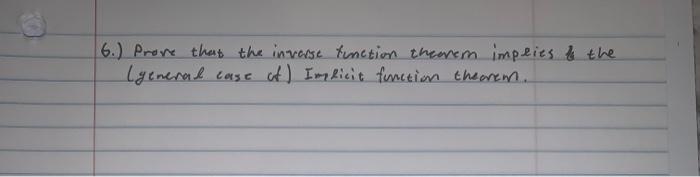 6.) Prove that the inverse function theorem implies the
(general case of) Implicit function theorem.